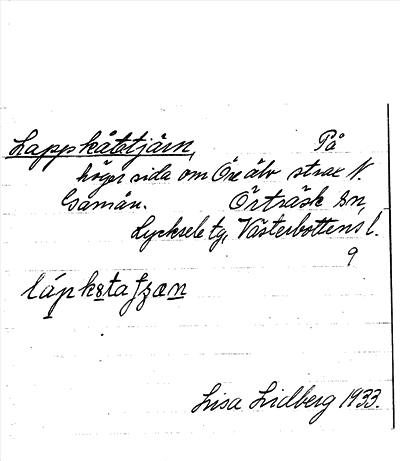 Lappkåtatjärn, På
höger sida om Öre älv strax N.
Gamån. Örträsk sn,
Lycksele tg, Västerbottens l.
9
Lisa Lidberg 1933.